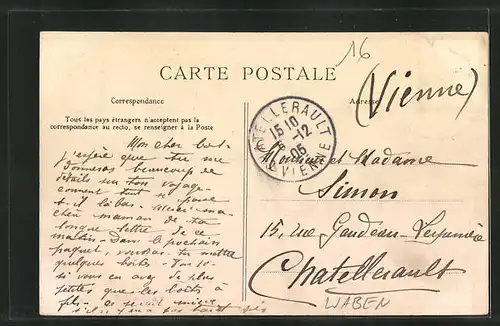 16
CARTE POSTALE
(Vienne)
Correspondance
Adresse
Tous les pays étrangers n'acceptent pas la
correspondance au recto, se renseigner à la Poste
CHATELLERAULT
15 10
6 -12
05
VIENNE
Mon cher
j'espère que tu me
donneras beaucoup de
détails sur ton voyage
comment tout se passe
là bas. Merci ma
chère maman de ta
longue lettre de ce
matin. Dans le prochain
paquet, tu mettre
quelques boîtes.
si vous en avez de plus
petites que les boîts à
ce serait mieux
pas tout
Monsieur et Madame
Simon
15, rue Gaudeau-
Chatellerault
WABEN